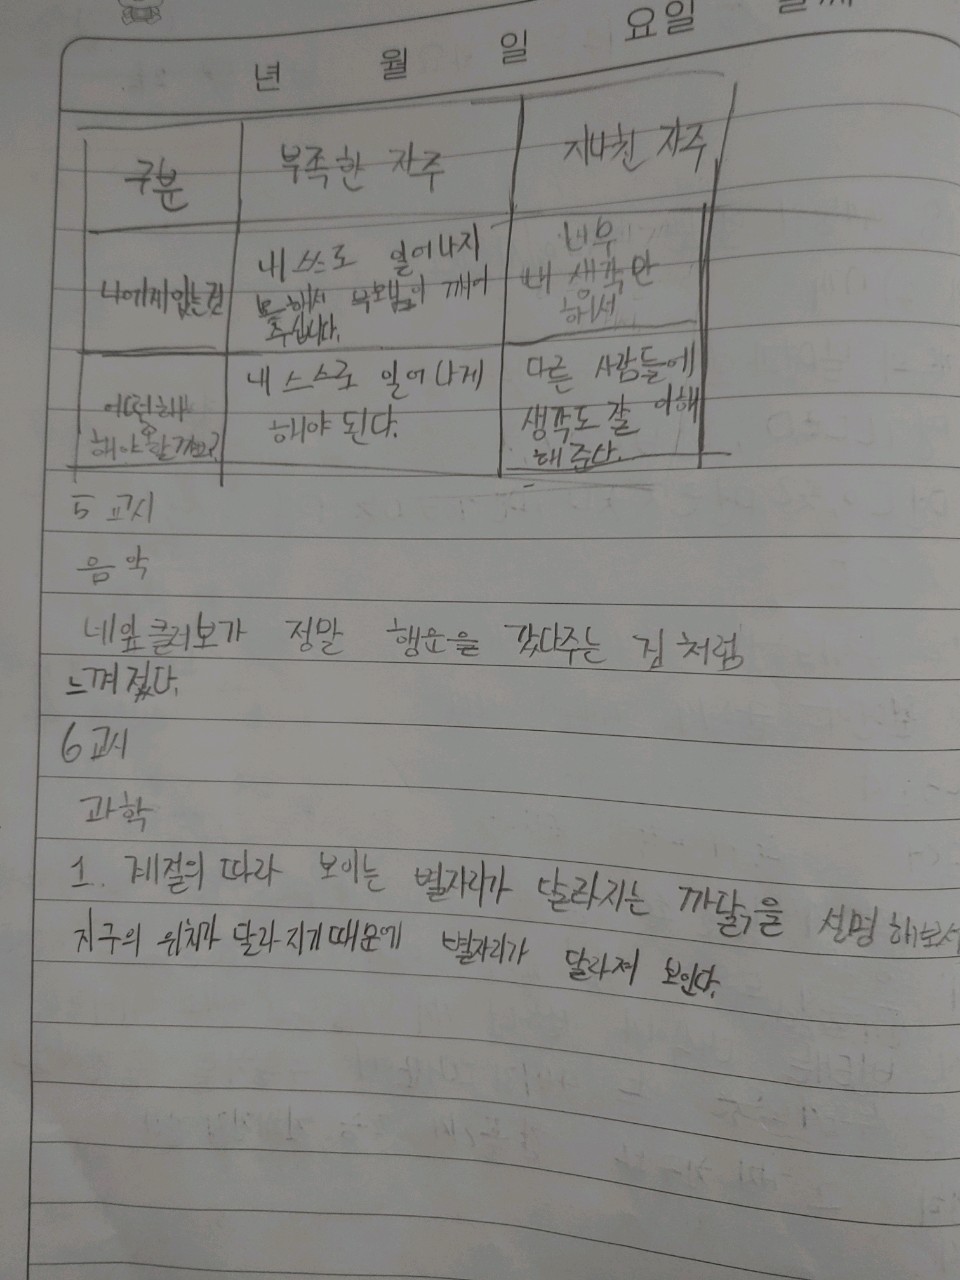 년 월 일 요일
구분 부족한 자주 지나친 자주
나에게있는건
내 쓰로 일어나지
못해서 부모님이 깨어
주십니다.
너무
내 생각만
해서
어떻해
해야할까요?
내 스스로 일어나게
해야 된다.
다른 사람들에
생각도 잘 이해
해 준다.
5교시
음악
네잎클러보가 정말 행운을 갖다주는 것 처럼
느껴젔다.
6교시
과학
1. 계절의 따라 보이는 별자리가 달라지는 까닭을 설명해보
지구의 위치가 달라지기때문에 별자리가 달라져 보인다.